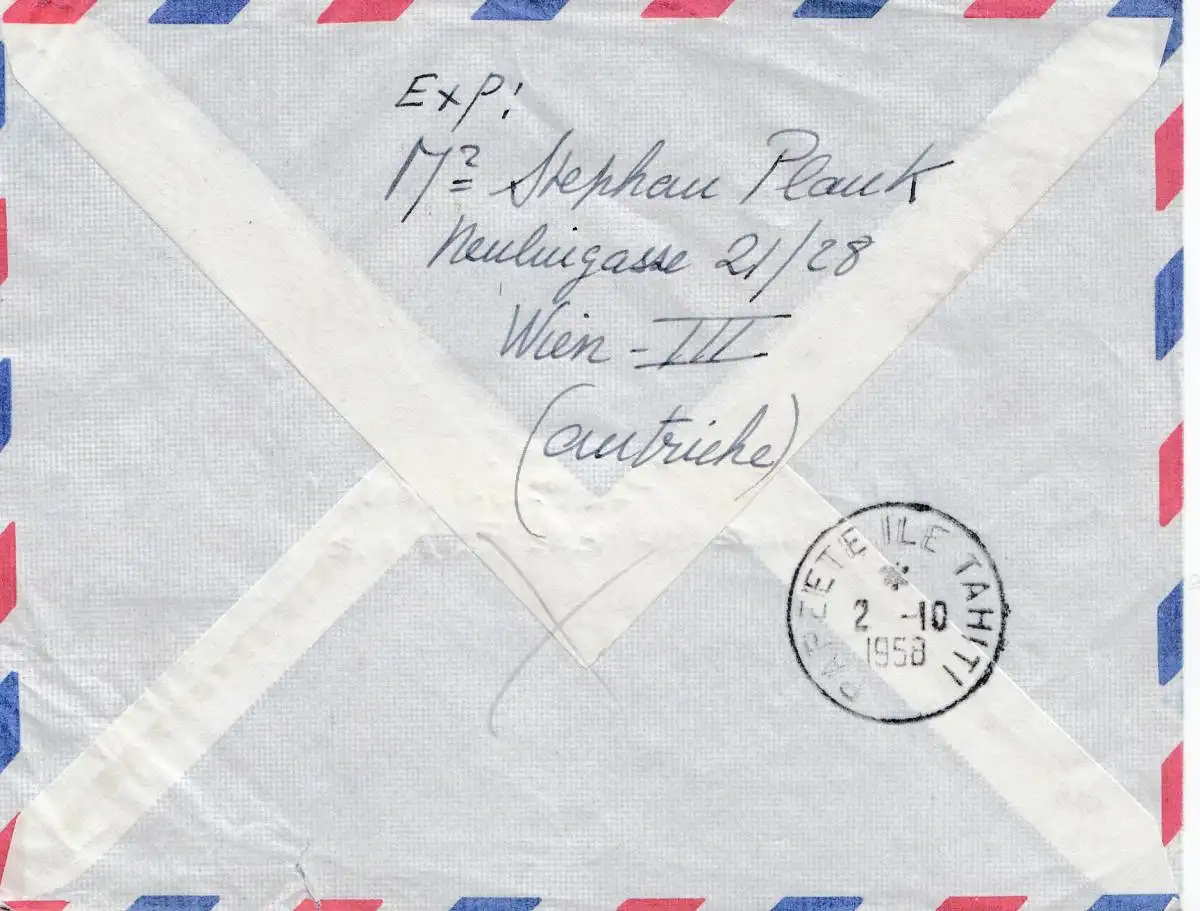 Exp:
Mr Stephan Plank
Neulinggasse 21/28
Wien - III
(autriche)
PAPEETE ILE TAHITI
2 -10
1958